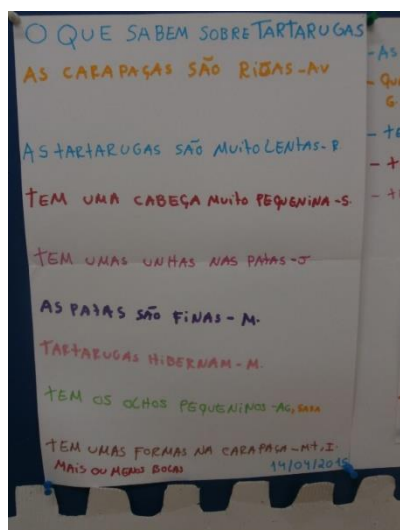 O QUE SABEM SOBRE TARTARUGAS
AS CARAPAÇAS SÃO RIJAS-AV
AS TARTARUGAS SÃO MUITO LENTAS-R
TEM UMA CABEÇA MUITO PEQUENINA-S.
TEM UMAS UNHAS NAS PATAS-J
AS PATAS SÃO FINAS-M.
TARTARUGAS HIBERNAM-M.
TEM OS OLHOS PEQUENINOS-AG, SARA
TEM UMAS FORMAS NA CARAPAÇA-MT, I.
MAIS OU MENOS BOLAS
14/04/2015
-AS
- QU
G
- TE
- T
- T